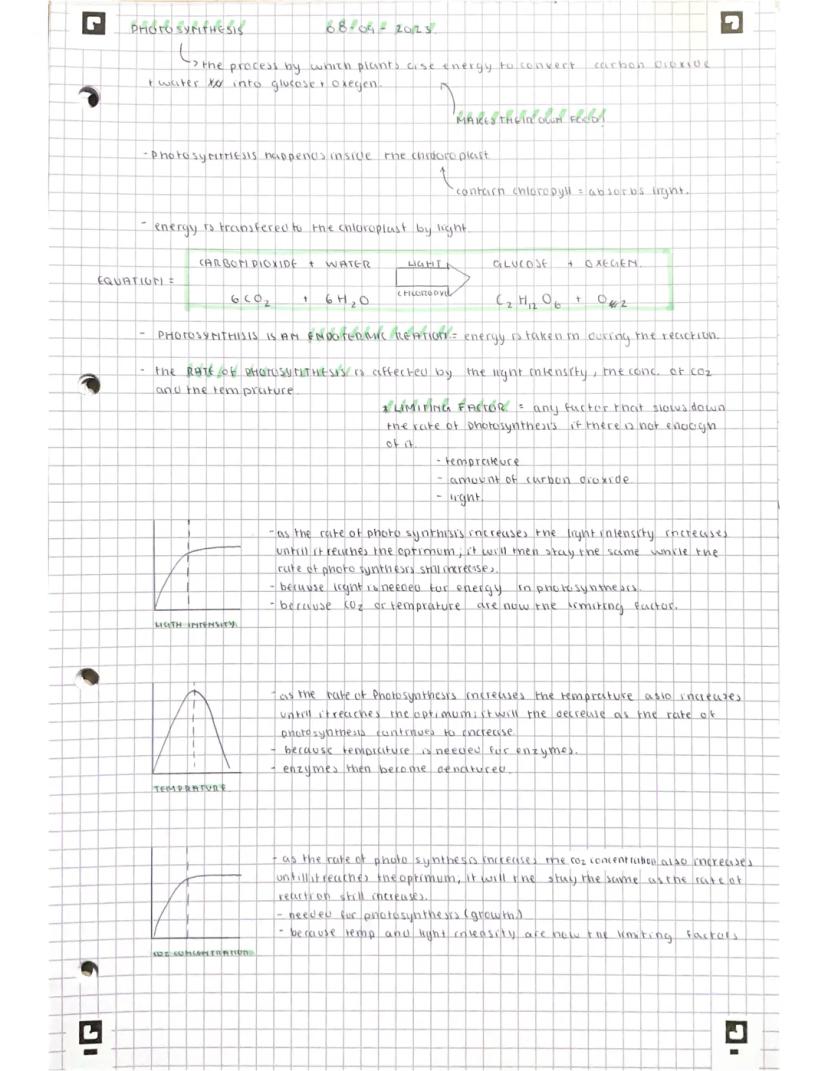 PHOTOSYNTHESIS 08-04-2023
↳ the process by which plants use energy to convert carbon dioxide
+ water into glucose + oxegen.
MAKES THEIR OWN FOOD!
- Photosynthesis happens inside the chloroplast
contain chloropyll = absorbs light.
- energy is transfered to the chloroplast by light
CARBON DIOXIDE + WATER LIGHT GLUCOSE + OXEGEN.
EQUATION =
CHLOROPYL
6CO₂ + 6H₂O C₂H₁₂O₆ + O₂
- PHOTOSYNTHISIS IS AN ENDOTERMIC REATION = energy is taken in during the reaction.
- the RATE OF PHOTOSYNTHESIS is affected by the light intensity, the conc. of CO2
and the temprature.
* LIMITING FACTOR = any factor that slows down
the rate of photosynthesis if there is not enough
of it.
- temprateure
- amount of carbon dioxide
- light.
- as the rate of photo synthisis increases the light intensity increases
untill it reaches the optimum, it will then stay the same while the
rate of photo synthesis still increases.
- because light is needed for energy in photosynthesis.
- because CO₂ or temprature are now the limiting factor.
LIGTH INTENSITY.
- as the rate of Photosynthesis increases the temprature also increases
untill it reaches the optimum, it will the decrease as the rate of
photosynthesis continues to increase
- because temprature is needed for enzymes.
- enzymes then become denatured.
TEMPRATURE
- as the rate of photo synthesis increases the CO2 concentration also increases
untill it reaches the optimum, it will the stay the same as the rate of
reaction still increases.
- needed for photosynthesis (growth.)
- because temp and light intensity are now the limiting factors
CO2 CONCENTRATION